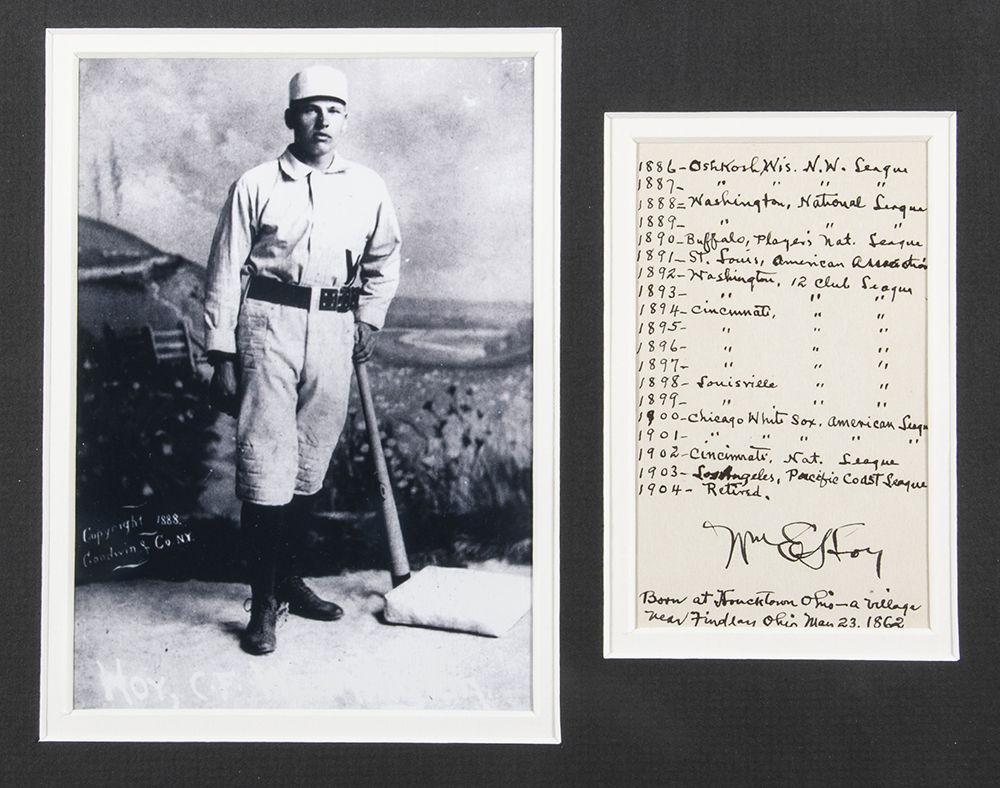 Copyright 1888.
Goodwin & Co. N.Y.
HOY, C.F.
1886 - Oshkosh, Wis. N.W. League
1887 - " " " "
1888 = Washington, National League
1889 - " " "
1890 - Buffalo, Player's Nat. League
1891 - St. Louis, American Association
1892 - Washington, 12 Club League
1893 - " " "
1894 - Cincinnati, " "
1895 - " " "
1896 - " " "
1897 - " " "
1898 - Louisville " "
1899 - " " "
1900 - Chicago White Sox. American League
1901 - " " " " "
1902 - Cincinnati, Nat. League
1903 - Los Angeles, Pacific Coast League
1904 - Retired.
Wm E Hoy
Born at Houcktown Ohio - a village
near Findlay Ohio May 23. 1862